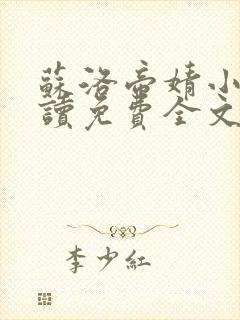 蘇洛帝婧小
讀免費全文
李少紅